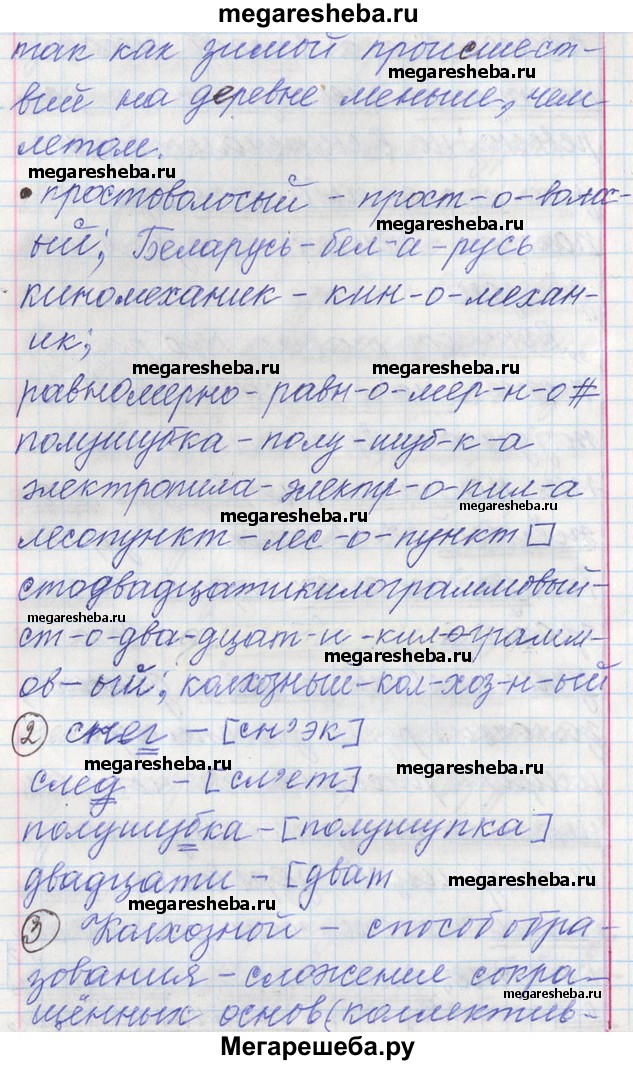 megaresheba.ru
так как зимой происшест-
megaresheba.ru
вий на деревне меньше, чем
летом.
megaresheba.ru
• простоволосый - прост-о-волос-
megaresheba.ru
ый; Беларусь-бел-а-русь
киномеханик - кин-о-механ-
ик;
megaresheba.ru megaresheba.ru
равномерно-равн-о-мер-н-о#
полушубка - полу-шуб-к-а
электропила-электр-о-пил-а
megaresheba.ru
лесопункт-лес-о-пункт□
стодвадцатикилограммовый-
megaresheba.ru
ст-о-два-дцат-и-кил-ограмм-
megaresheba.ru
ов-ый; колхозный-кол-хоз-н-ый
② снег - [сн'эк]
megaresheba.ru
след - [сл'ет]
megaresheba.ru
полушубка - [полушупка]
двадцати - [дват
megaresheba.ru
③ Колхозной - способ обра-
зования - сложение сокра-
megaresheba.ru
щённых основ (коллектив-
Мегарешеба.ру